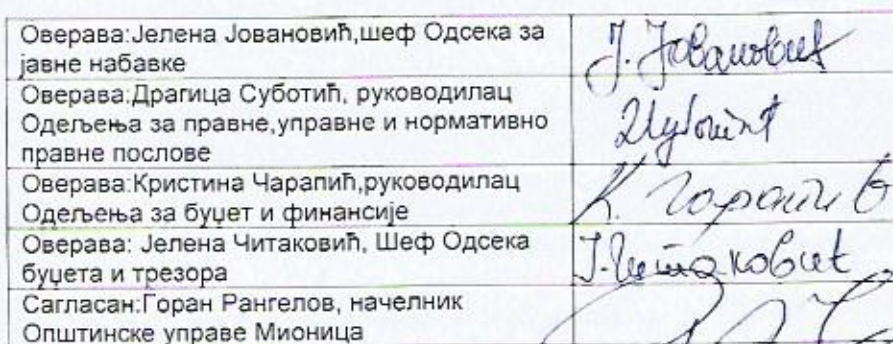 Оверава:Јелена Јовановић,шеф Одсека за
јавне набавке
Ј. Јовановић
Оверава:Драгица Суботић, руководилац
Одељења за правне,управне и нормативно
правне послове
Оверава:Кристина Чарапић,руководилац
Одељења за буџет и финансије
К.
Оверава: Јелена Читаковић, Шеф Одсека
буџета и трезора
Ј. Читаковић
Сагласан:Горан Рангелов, начелник
Општинске управе Мионица